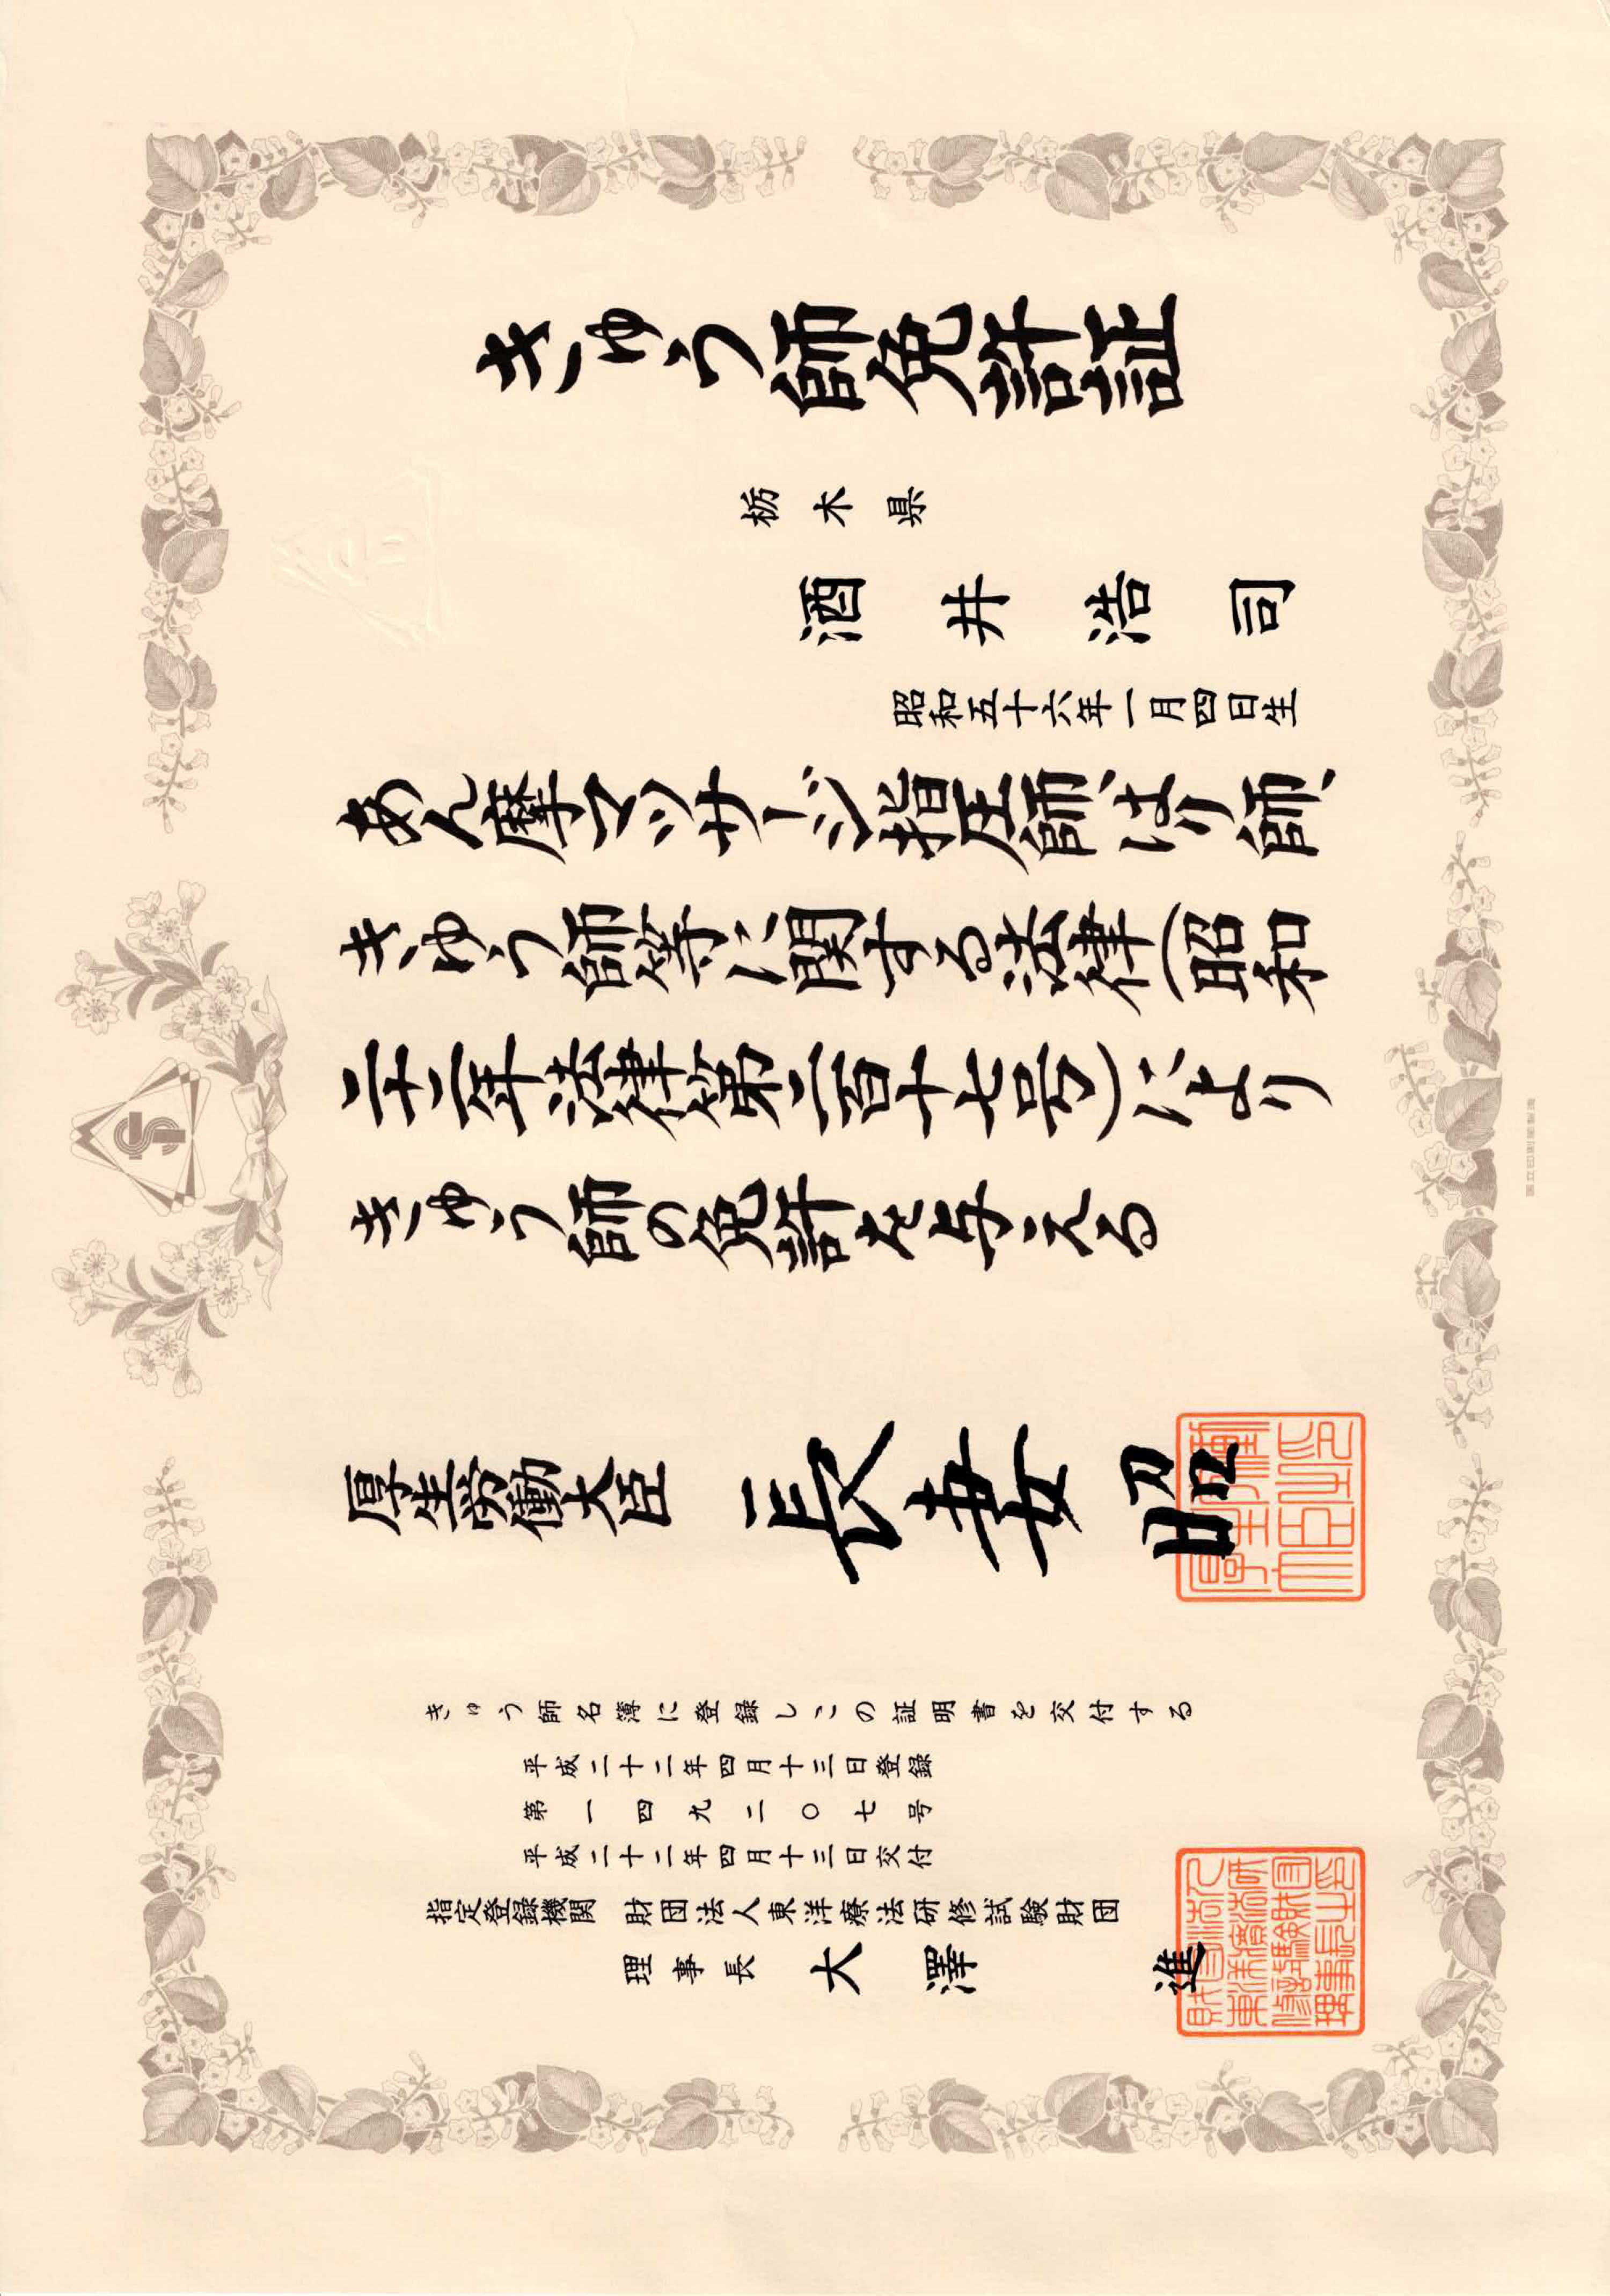 きゅう師免許証
栃木県
酒井浩司
昭和五十六年一月四日生
あん摩マツサージ指圧師、はり師、
きゆう師等に関する法律(昭和
二十二年法律第二百十七号)により
きゅう師の免許を与える
厚生労働大臣 長妻昭
厚生労働大臣之印
きゅう師名簿に登録しこの証明書を交付する
平成二十二年四月十三日登録
第一四九二〇七号
平成二十二年四月十三日交付
指定登録機関 財団法人東洋療法研修試験財団
理事長 大澤 進
財団法人東洋療法研修試験財団理事長之印
国立印刷局製造